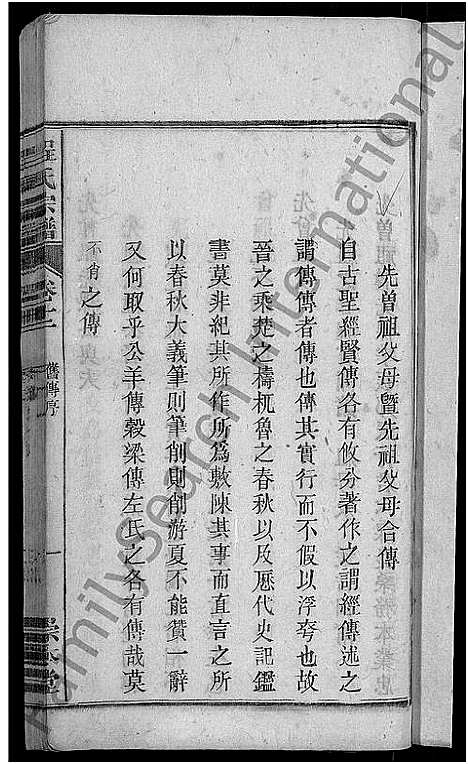 先曾祖父母暨先祖父母合傳
自古聖經賢傳各有攸分著作之謂經傳述之
謂傳傳者傳也傳其實行而不假以浮夸也故
晉之乘楚之檮杌魯之春秋以及厯代史記鑑
書莫非紀其所作所為敷陳其事而直言之所
以春秋大義筆則筆削則削游夏不能贊一辭
又何取乎公羊傳榖梁傳左氏之各有傳哉莫
不肯之傳
程氏宗譜
卷十二
舊傳序
一
familysearch international